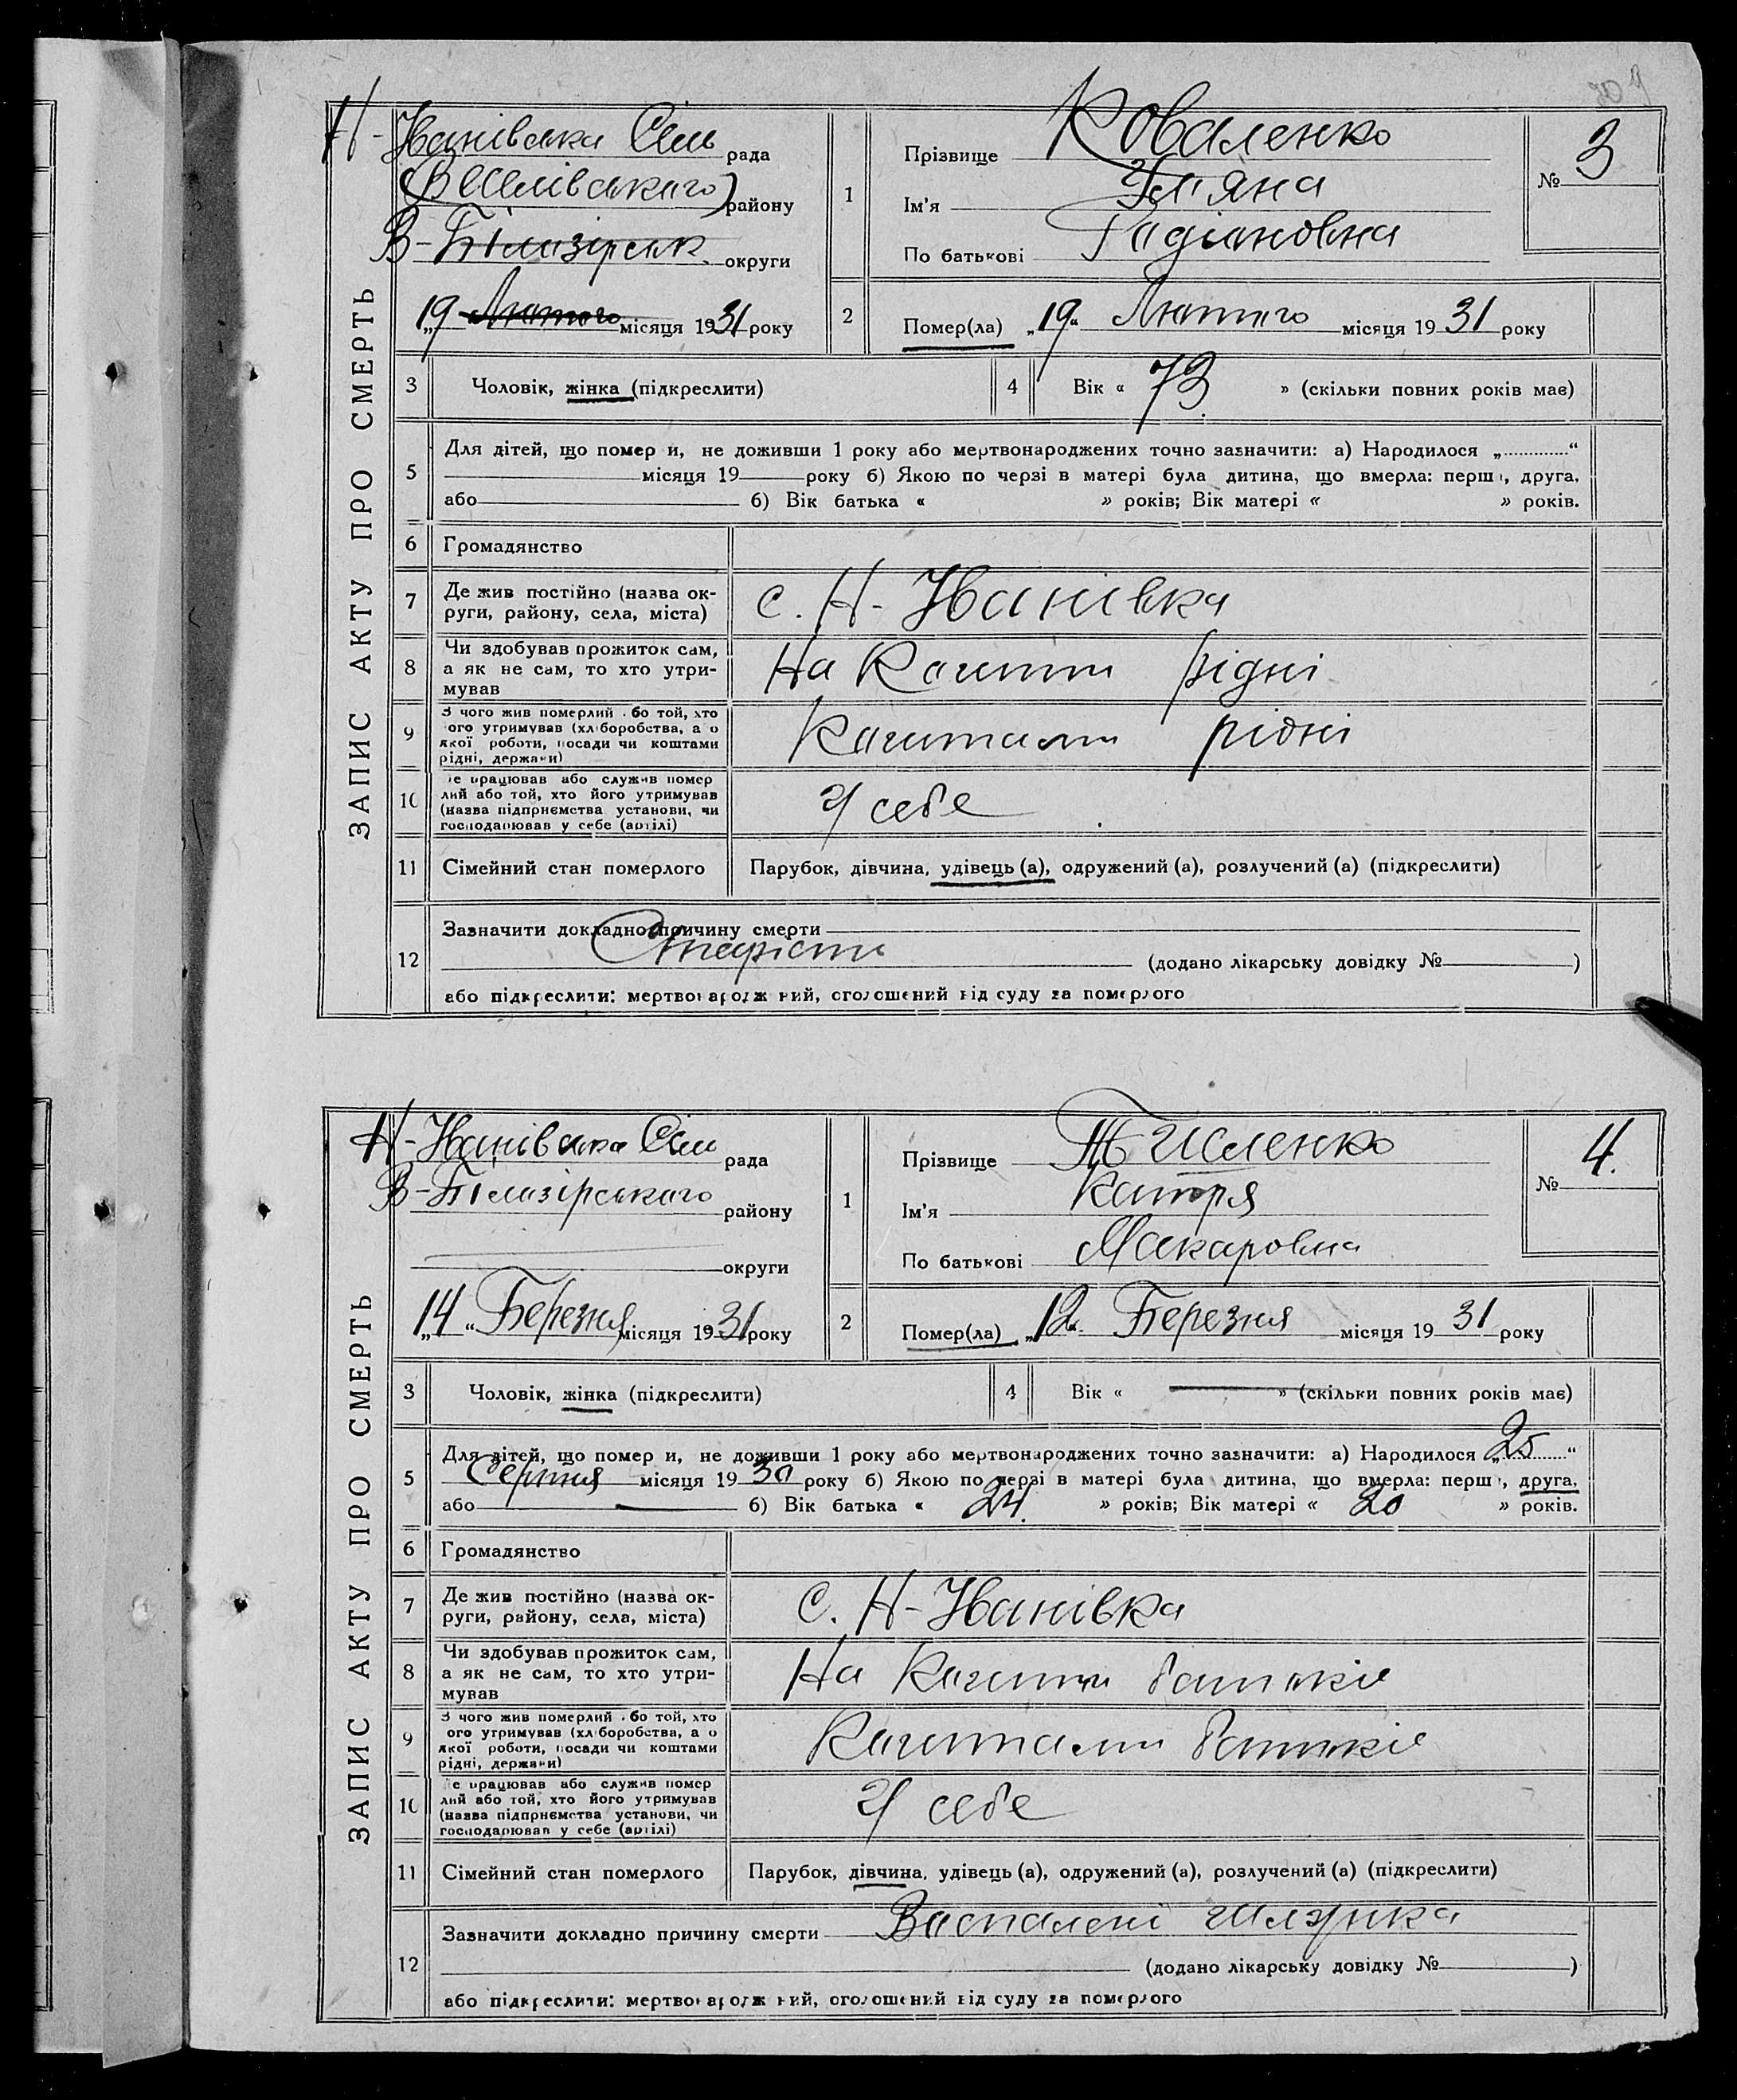 ЗАПИС АКТУ ПРО СМЕРТЬ
Н-Іванівська Сіль рада
(Веселівського) району
В-Білозірськ. округи
„19 Лютого місяця 1931 року
1
Прізвище Коваленко
Ім'я
По батькові Радіоновна
№ 3
2 Помер(ла) „19" Лютого місяця 1931 року
3 Чоловік, жінка (підкреслити)
4 Вік « 73 » (скільки повних років має)
5 Для дітей, що помер и, не доживши 1 року або мертвонароджених точно зазначити: а) Народилося „ “
місяця 19 року б) Якою по черзі в матері була дитина, що вмерла: перш , друга,
або б) Вік батька « » років; Вік матері « » років.
6 Громадянство
7 Де жив постійно (назва ок-
руги, району, села, міста)
с. Н-Іванівка
8 Чи здобував прожиток сам,
а як не сам, то хто утри-
мував
На Кошти рідні
9 З чого жив померлий бо той, хто
ого утримував (хліборобства, а о
якої роботи, посади чи коштами
рідні, держави)
Коштами рідні
10 е працював або служив помер
лий або той, хто його утримував
(назва підприємства установи, чи
господарював у себе (артілі)
У себе
11 Сімейний стан померлого Парубок, дівчина, удівець (а), одружений (а), розлучений (а) (підкреслити)
12 Зазначити докладно причину смерти
Старість (додано лікарську довідку № )
або підкреслити: мертвонароджений, оголошений від суду за померлого
ЗАПИС АКТУ ПРО СМЕРТЬ
Н-Іванівська Сіль рада
В-Білозірського району
округи
„14“ Березня місяця 1931 року
1
Прізвище
Ім'я Катря
По батькові Макаровна
№ 4.
2 Помер(ла) „12" Березня місяця 1931 року
3 Чоловік, жінка (підкреслити)
4 Вік « — » (скільки повних років має)
5 Для дітей, що помер и, не доживши 1 року або мертвонароджених точно зазначити: а) Народилося „25“
Серпня місяця 1930 року б) Якою по черзі в матері була дитина, що вмерла: перш , друга,
або — б) Вік батька « 24. » років; Вік матері « 20 » років.
6 Громадянство
7 Де жив постійно (назва ок-
руги, району, села, міста)
с. Н-Іванівка
8 Чи здобував прожиток сам,
а як не сам, то хто утри-
мував
На Кошти батьків
9 З чого жив померлий бо той, хто
ого утримував (хліборобства, а о
якої роботи, посади чи коштами
рідні, держави)
Коштами батьків
10 е працював або служив помер
лий або той, хто його утримував
(назва підприємства установи, чи
господарював у себе (артілі)
У себе
11 Сімейний стан померлого Парубок, дівчина, удівець (а), одружений (а), розлучений (а) (підкреслити)
12 Зазначити докладно причину смерти Воспалені шлунка
(додано лікарську довідку № )
або підкреслити: мертвонароджений, оголошений від суду за померлого